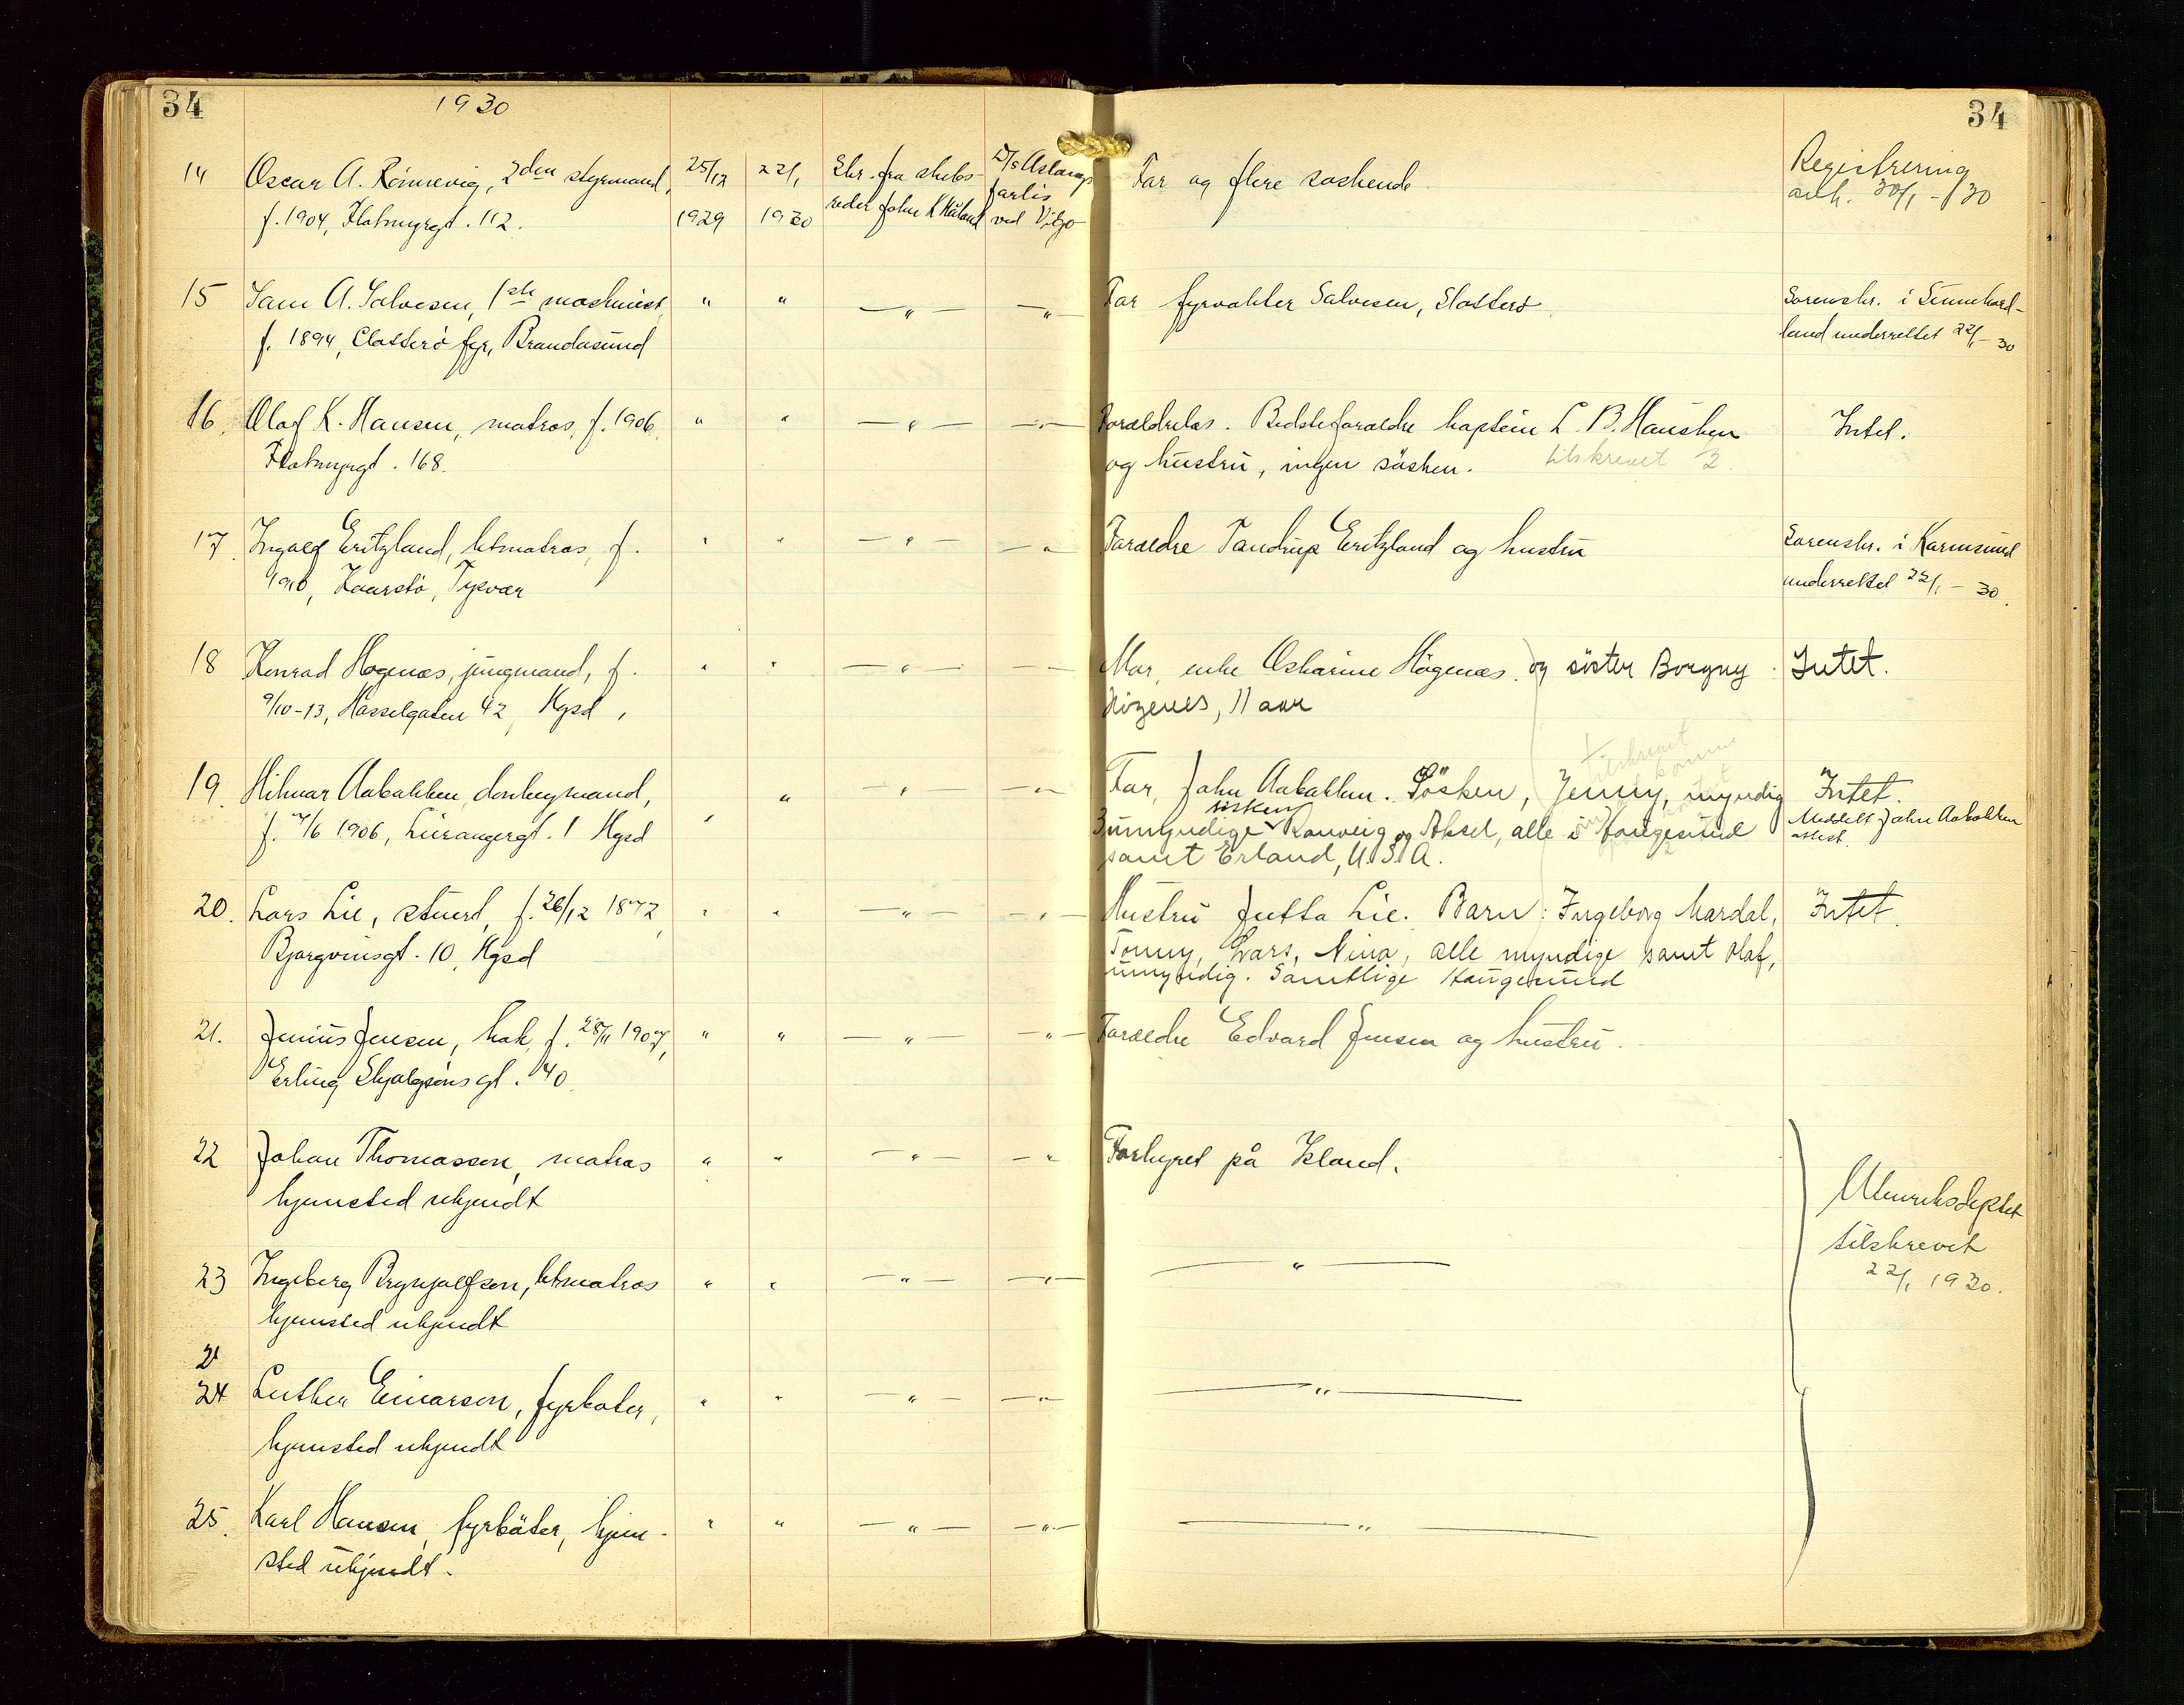 34
1930
34
14 Oscar A. Rönnevig, 2den styrmand, 25/12 22/1 Skr. fra skibs- D/s Aslaug Far og flere söskende. Registrering
f. 1904, Flotmyrgt. 112. 1929 1930 reder John K Haaland forlis ved anh. 30/1 - 30
15 Sam A. Salvesen, 1ste maskinist " " — " — — " Far fyrvakter Salvesen, Slotterö Sorenskr. i Sunnhord-
f. 1894, Slotterö fyr, Brandasund land underrettet 22/1 - 30
16. Olaf K. Hansen, matros, f. 1906, " " — " — — " — Forældrelös. Bedsteforældre kaptein L. B. Hansen Intet.
Flotmyrgt. 168. og hustru, ingen sösken. tilskrevet
17. Ingolf Eritzland, letmatros, f. " " — " — — " Forældre Tandrup Eritzland og hustru Sorenskr. i Karmsund
1910, Kaarstö, Tysvær underrettet 22/1 - 30.
18 Konrad Högenæs, jungmand, f. " " — " — — Mor, enke Oskarine Högenæs. og söster Borgny Intet.
9/10-13, Hasselgaten 42, Hgsd, Högenes, 11 aar
tilskrevet
19. Hilmar Aabakken, donkeymand, " " — " — — " — Far, John Aabakken. Sösken, Jenny, myndig Intet.
f. 7/6 1906, 1 Hgsd 3 umyndige sösken Ranveig og Aksel, alle i Haugesund Meddelt John Aabakken
samt Erland, U.S.A. attest.
20. Lars Lie, stuert, f. 26/12 1872, " " — " — — " — Hustru Jutta Lie. Barn: Ingeborg Mardal, Intet.
Bjørgvinsgt. 10, Hgsd Tonny, Lars, Nina, alle myndige samt Olaf,
umyndig. Samtlige Haugesund
21. Junius Jensen, kok, f. 28/11 1907, " " — " — — " — Forældre Edvard Jensen og hustru.
Erling Skjalgsöns gt. 40.
22 Johan Thomasson, matros " " — " — — " Forhyret på Island.
hjemsted ukjendt Utenriksdeptet
tilskrevet
23 Ingeberg Brynjolfson, letmatros " " — " — — " — — " — 22/1 1930.
hjemsted ukjendt
24 Luther Einarson, fyrböter, " " — " — — " — — " —
hjemsted ukjendt
25. Karl Hansen, fyrböter, hjem- " " — " — — " — — " —
sted ukjendt.